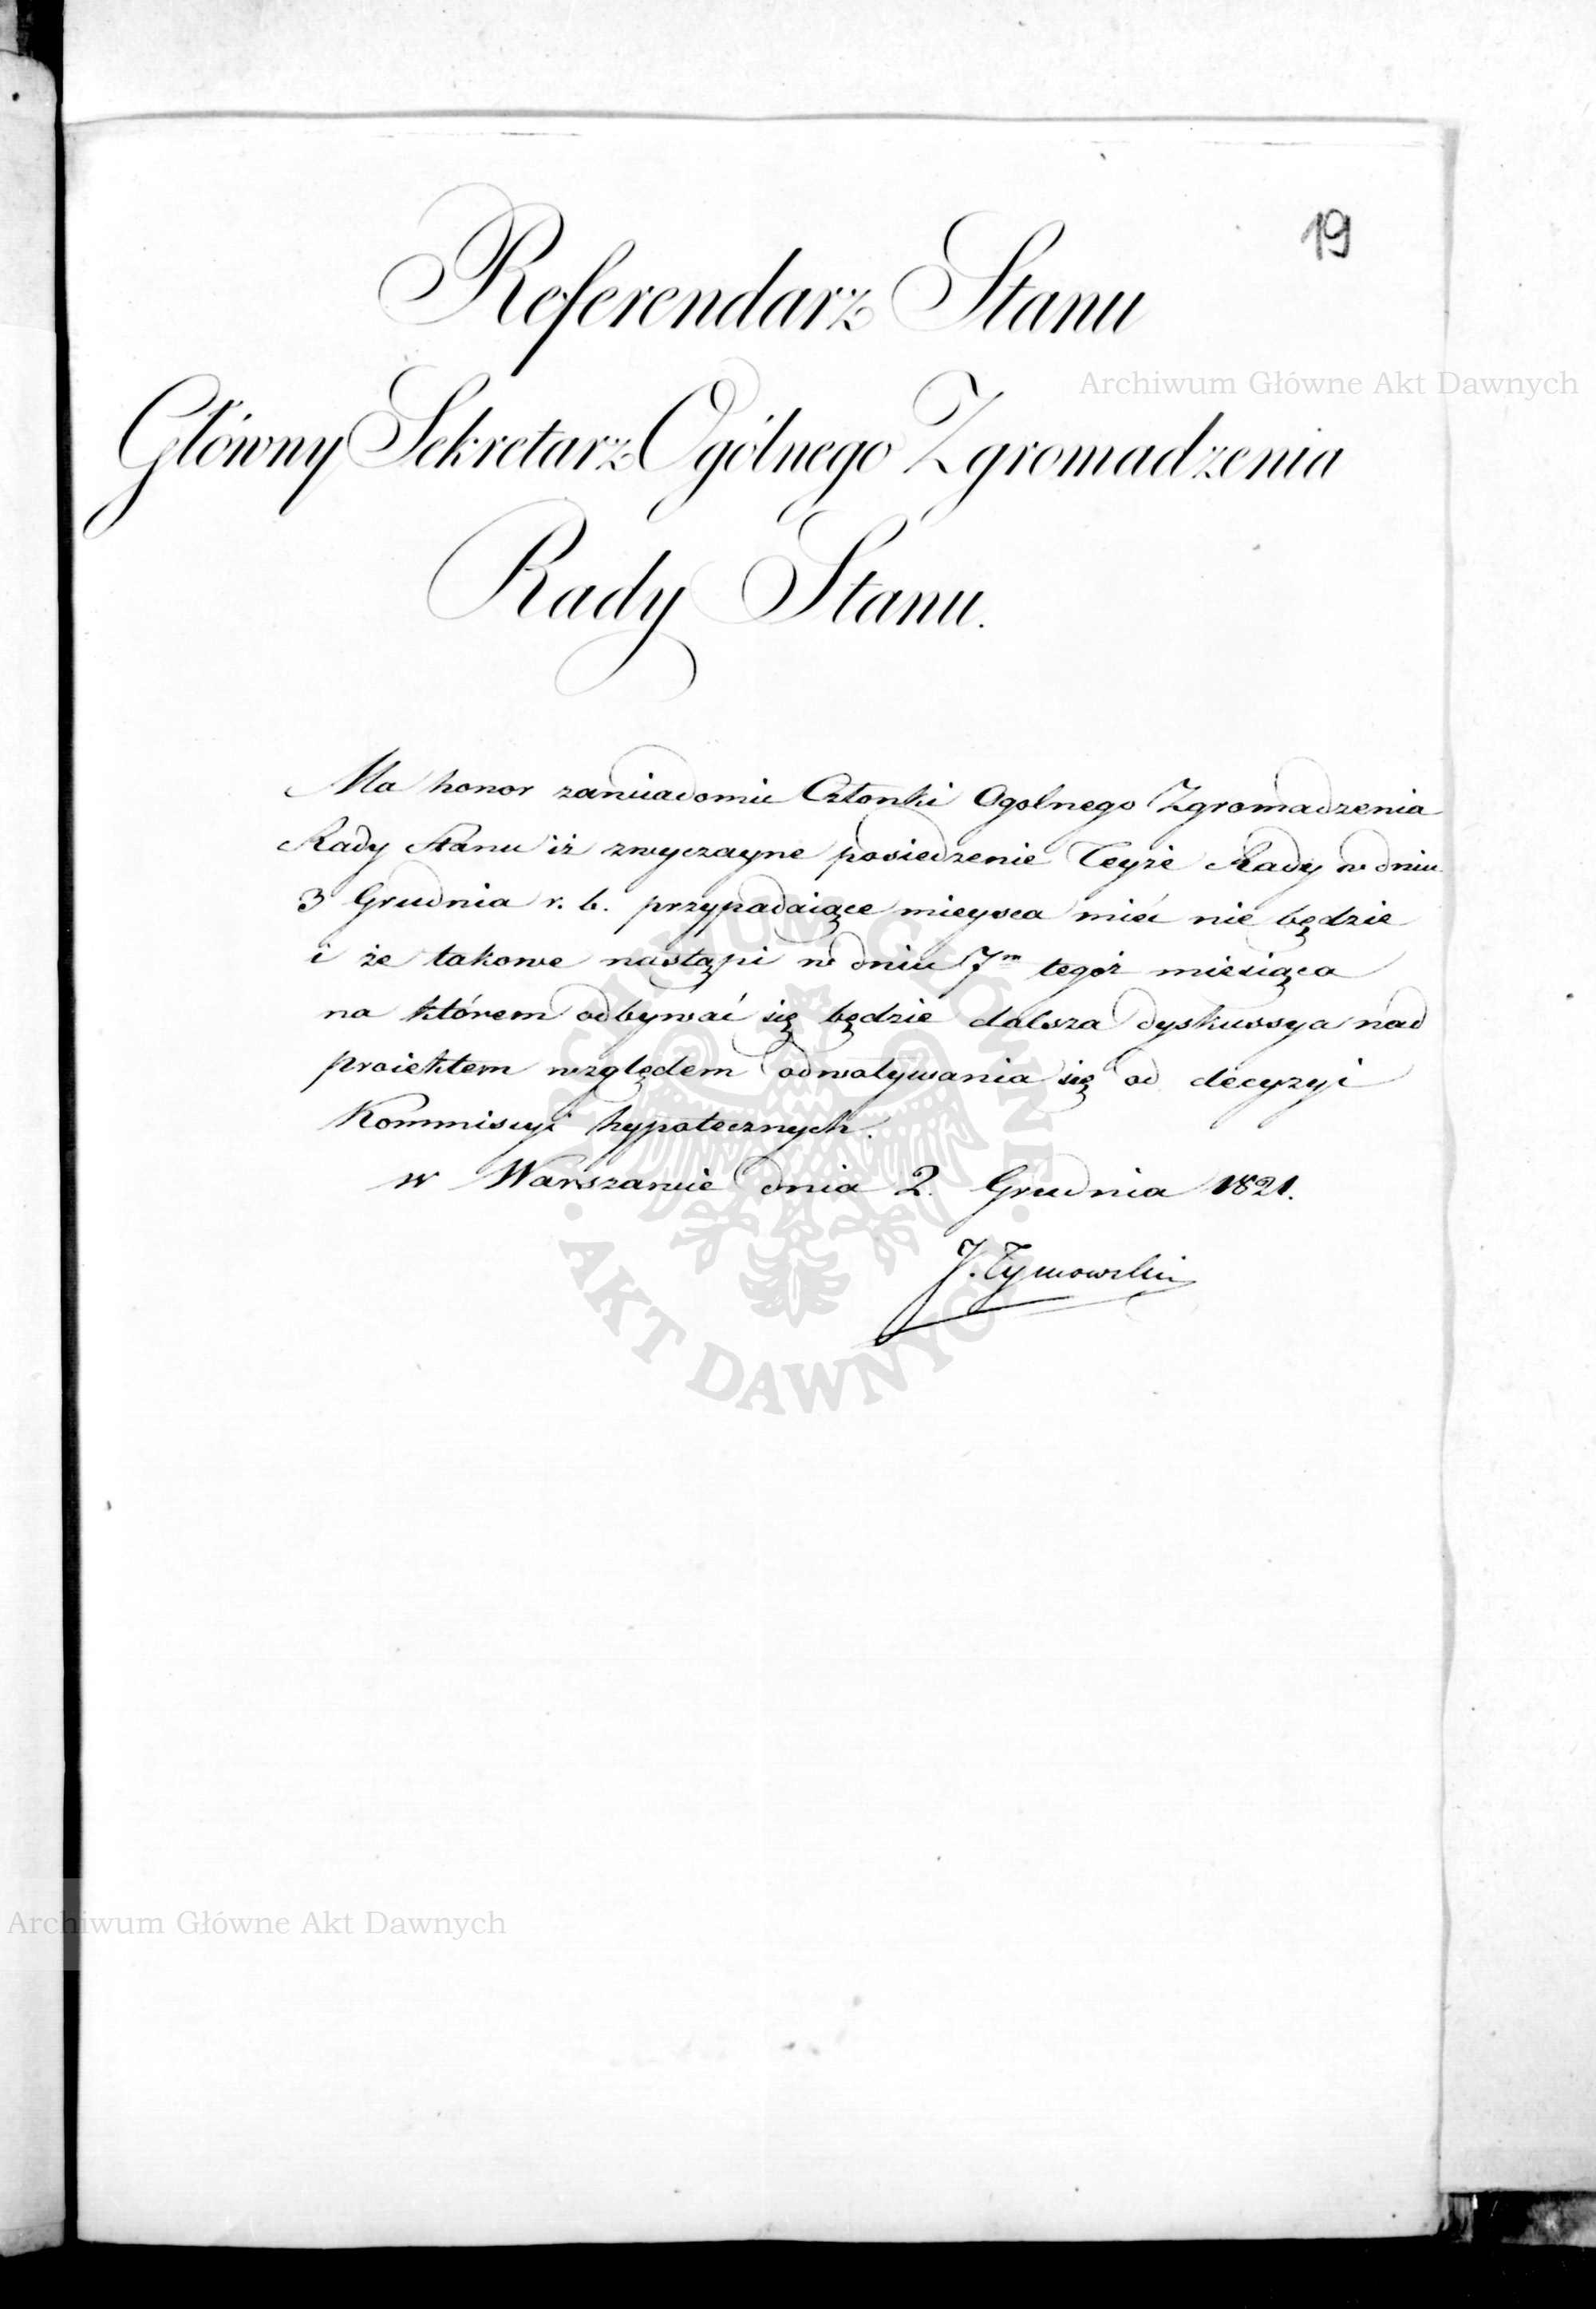 19
Referendarz Stanu
Archiwum Główne Akt Dawnych
Główny Sekretarz Ogólnego Zgromadzenia
Rady Stanu.
Ma honor zawiadomić Członki Ogolnego Zgromadzenia
Rady Stanu iż zwyczayne posiedzenie Teyże Rady w dniu
3 Grudnia r. b. przypadaiące mieysca mieć nie będzie
i że takowe nastąpi w dniu 7m tegoż miesiąca
na którem odbywać się będzie dalsza dyskussya nad
proiektem względem odwoływania się od decyzyi
Kommissyi hypotecznych.
w Warszawie dnia 2. Grudnia 1821.
J. Tymowski
ARCHIWUM GŁÓWNE · AKT DAWNYCH ·
Archiwum Główne Akt Dawnych